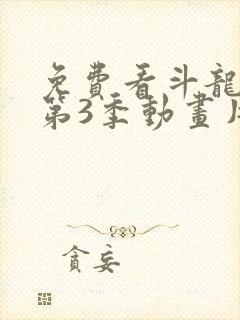 免費看斗龍
第3季動畫
貪妄